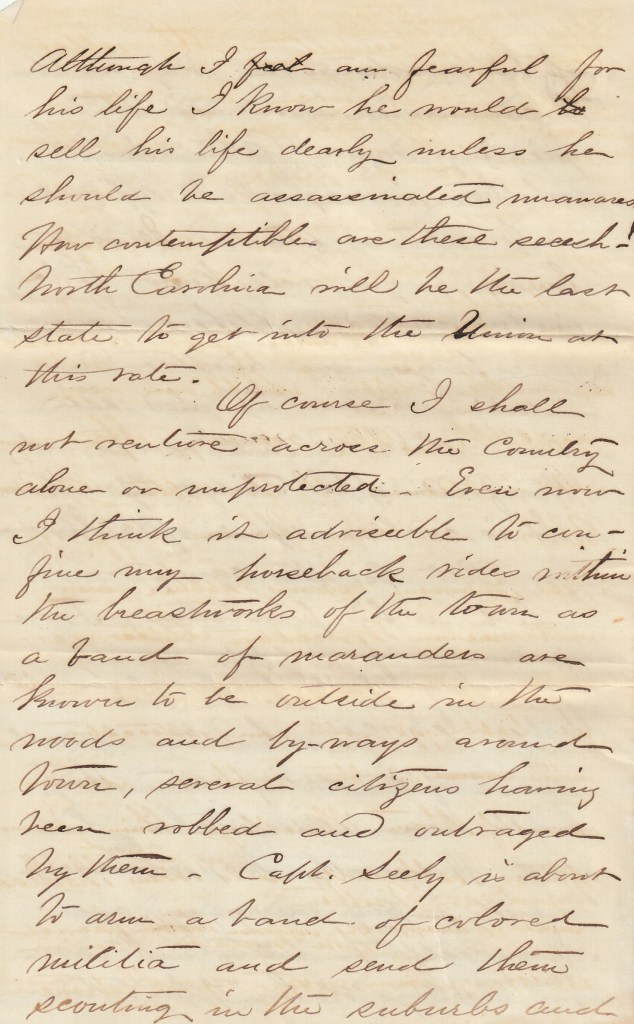 Although I feel am fearful for
his life I know he would be
sell his life dearly unless he
should be assassinated unawares
How contemptible are these secesh-!
North Carolina will be the last
state to get into the Union at
this rate.
Of course I shall
not venture across the Country
alone or unprotected - Even now
I think it adviseable to con-
fine my horseback rides within
the breastworks of the town as
a band of marauders are
known to be outside in the
woods and by-ways around
town, several citizens having
been robbed and outraged
by them - Capt. Seely is about
to arm a band of colored
militia and send them
scouting in the suburbs and